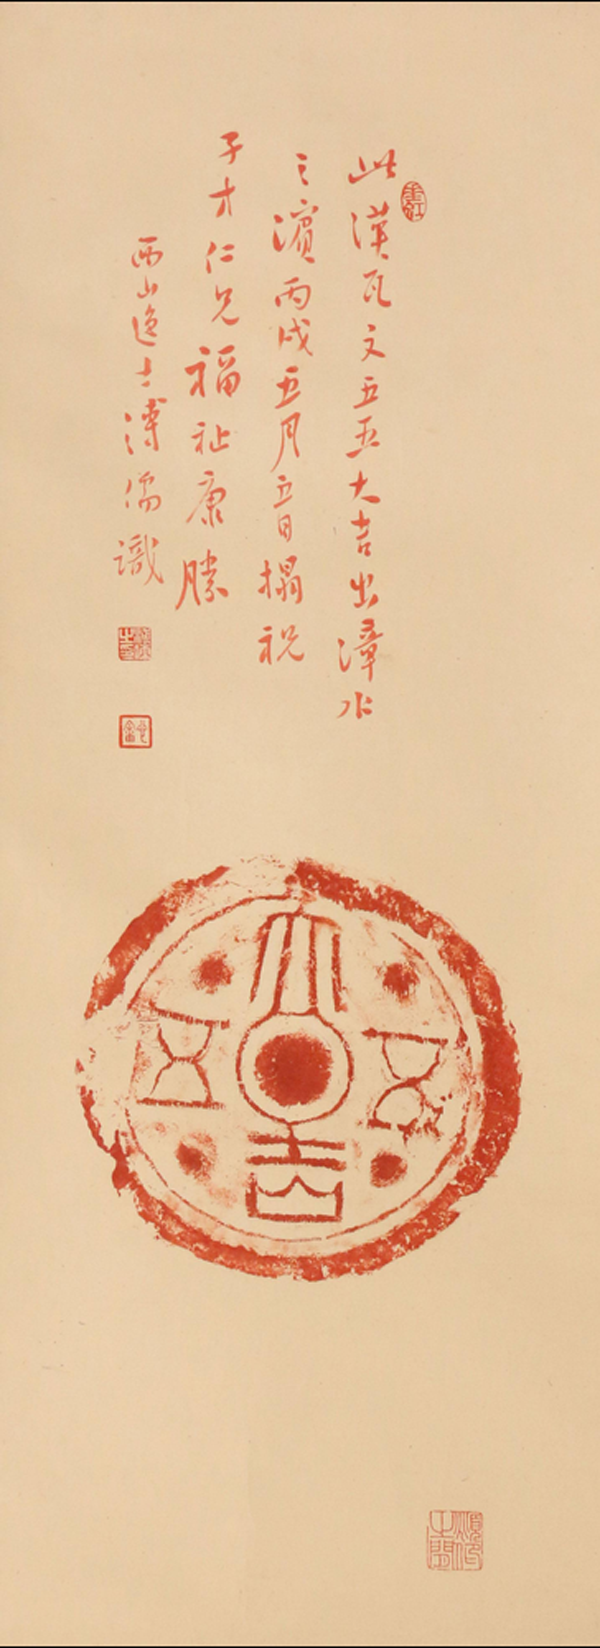 此漢瓦文五五大吉出漳水
之濱丙戌五月五日搨祝
子才仁兄福祉康勝
西山逸士溥儒識
大
五五
吉